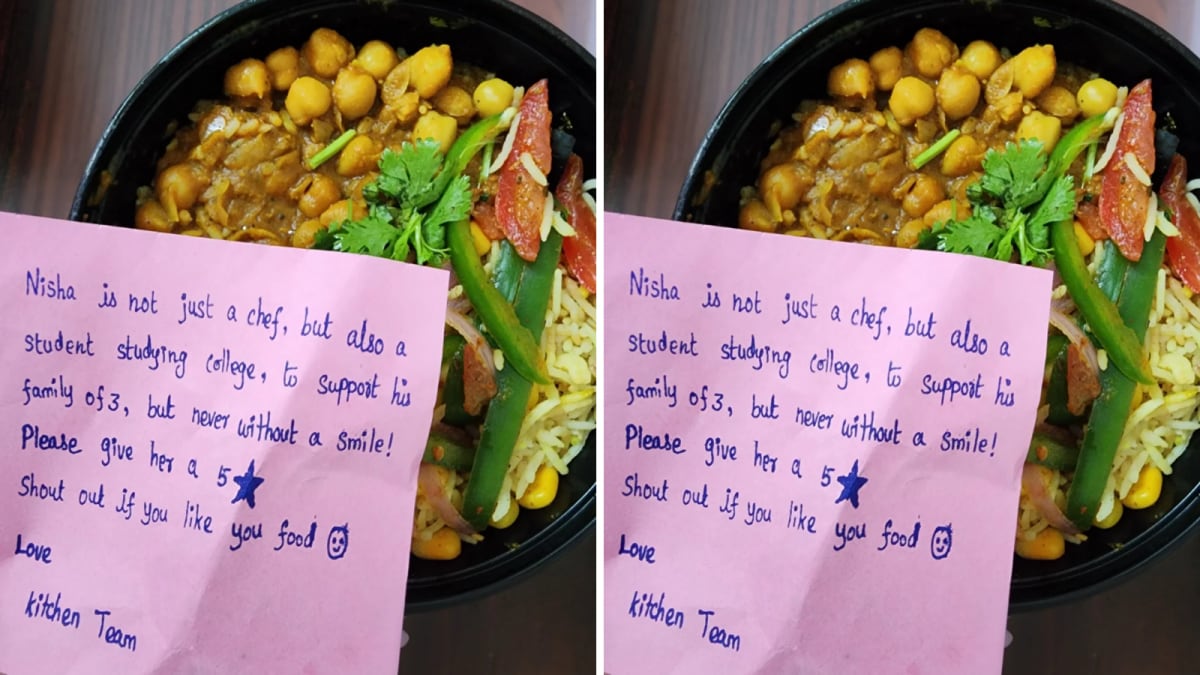 Nisha is not just a chef, but also a
student studying college, to support his
family of 3, but never without a smile!
Please give her a 5 ★
Shout out if you like you food ☺
Love
kitchen Team
Nisha is not just a chef, but also a
student studying college, to support his
family of 3, but never without a smile!
Please give her a 5 ★
Shout out if you like you food ☺
Love
kitchen Team